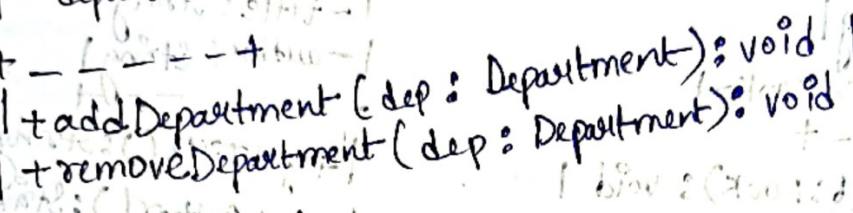 + - - - - - +
| + addDepartment (dep : Department) : void
| + removeDepartment (dep : Department) : void